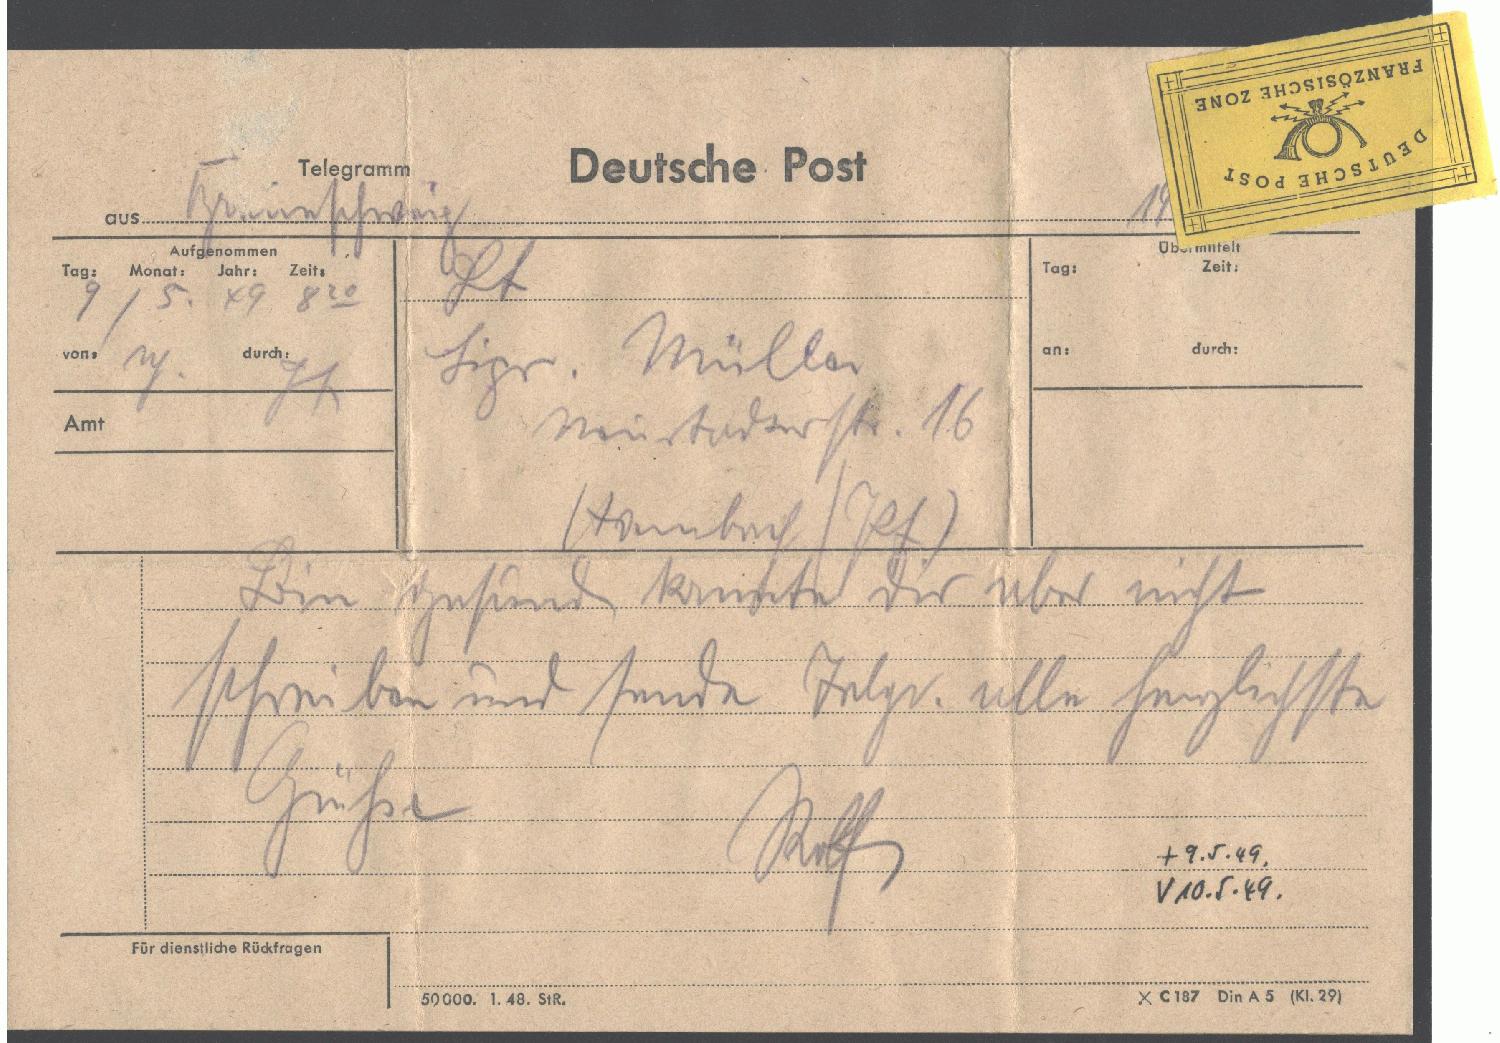 FRANZÖSISCHE ZONE
DEUTSCHE POST
Telegramm
Deutsche Post
aus Braunschweig 14
Aufgenommen
Tag: Monat: Jahr: Zeit:
9 / 5. 49 8 20
von: durch:
Amt
Lt
Müller
Neustadterstr. 16
(Hambach / Pf)
Übermittelt
Tag: Zeit:
an: durch:
Bin gesund konnte dir aber nicht
schreiben und sende Telgr. alle herzlichste
Grüße
Rolf
+ 9.5.49.
V 10.5.49.
Für dienstliche Rückfragen
50000. 1. 48. StR.
X C 187 Din A 5 (Kl. 29)